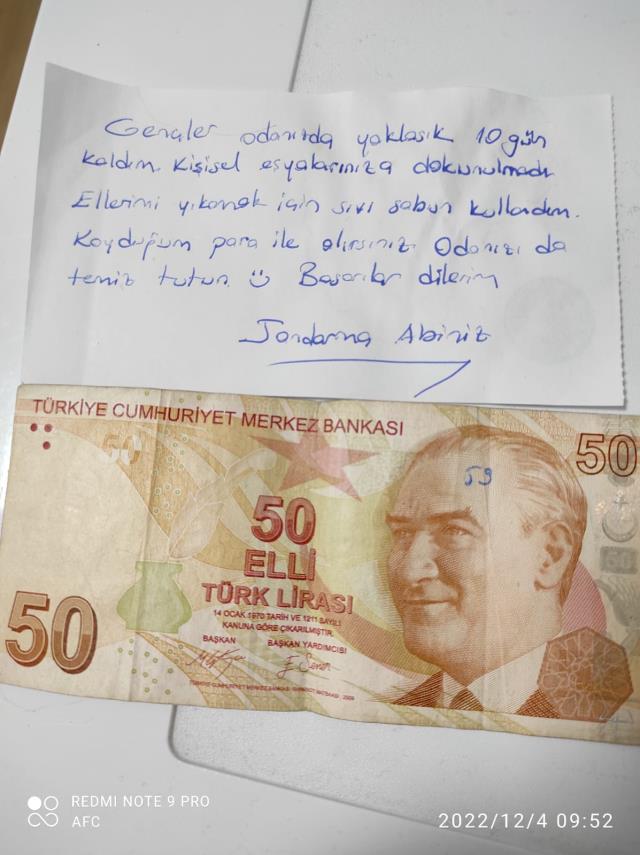 Gençler odanızda yaklaşık 10 gün
kaldım. Kişisel eşyalarınıza dokunulmadı
Ellerimi yıkamak için sıvı sabun kullandım.
Koyduğum para ile alırsınız. Odanızı da
temiz tutun. Başarılar dilerim
Jandarma Abiniz
TÜRKİYE CUMHURİYET MERKEZ BANKASI
50
50
59
50
ELLİ
TÜRK LİRASI
14 OCAK 1970 TARİH VE 1211 SAYILI
KANUNA GÖRE ÇIKARILMIŞTIR.
BAŞKAN BAŞKAN YARDIMCISI
50
REDMI NOTE 9 PRO
AFC
2022/12/4 09:52